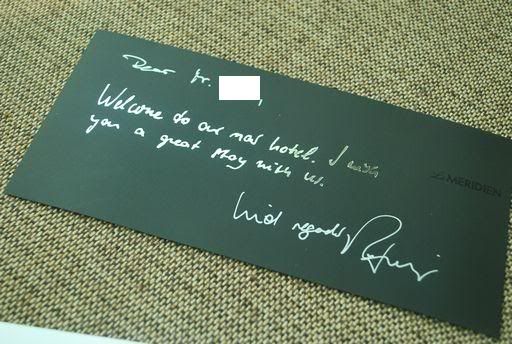 Dear Mr.
Welcome to our new hotel. I wish
you a great stay with us.
Le MERIDIEN
Kind regards,